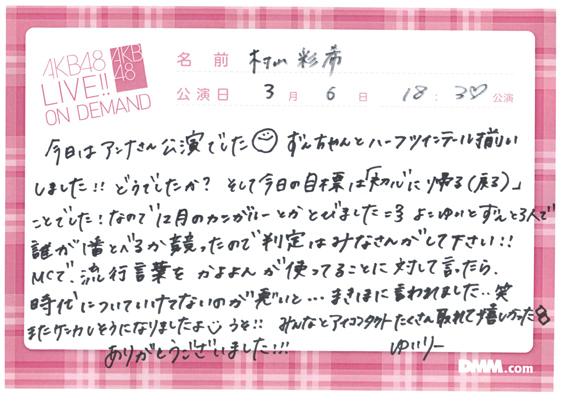 AKB48
LIVE!!
ON DEMAND
AKB
48
名前 村山彩希
公演日 3月6日 18:30公演
今日はアンナさん公演でした ずんちゃんとハーフツインテール揃い
しました!! どうでしたか? そして今日の目標は「初心に帰る(戻る)」
ことでした!なので12月のカンガルーとかとびました=3 よこゆいとずんと3人で
誰が1番とべるか競ったので判定はみなさんがして下さい!!
MCで、流行言葉をかよよんが使ってることに対して言ったら、
時代についていけてないのが悪いと…まきほに言われました..笑
またケンカしそうになりましたよ うそ!! みんなとアイコンタクトたくさん取れて嬉しかった8
ありがとうございました!!! ゆいりー
DMM.com